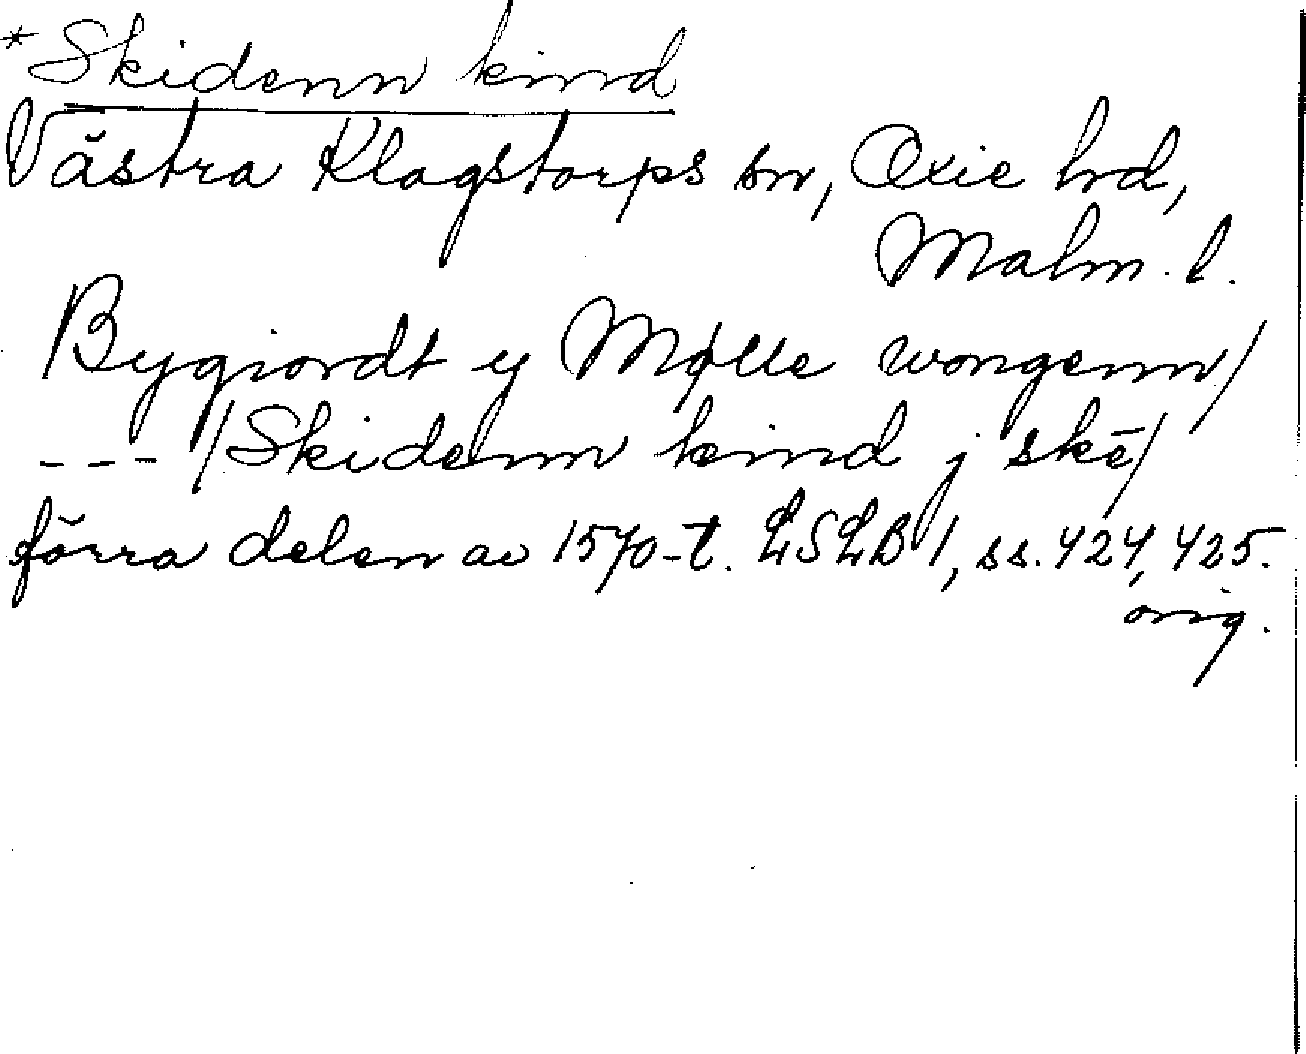 *Skidenn kind
Västra Klagstorps sn, Oxie hd,
Malm. l.
Bygiordt y Mølle wongenn/
--- /Skidenn kind j skē/
förra delen av 1570-t. LSLB 1, ss. 424, 425.
orig.